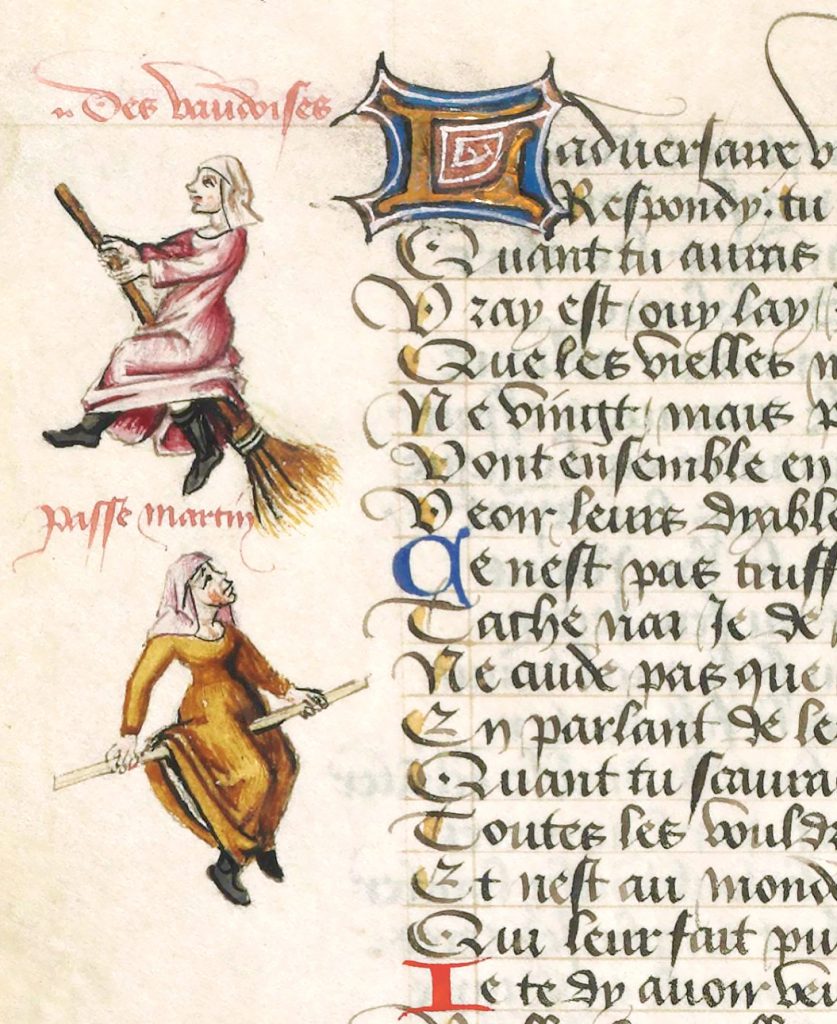 Des vaudoises
Ladversaire v
Respondy: tu
Quant tu auras
Vray est ouy lay
Que les vielles
Ne vingt mais p
Vont ensemble en
Veoir leurs dyabl
Ce nest pas truff
passe martin
Tache nai Je de
Ne cuide pas que
En parlant de le
Quant tu scaura
Toutes les vould
Et nest au mond
Qui leur fait pu
Ie te dy auoir veu